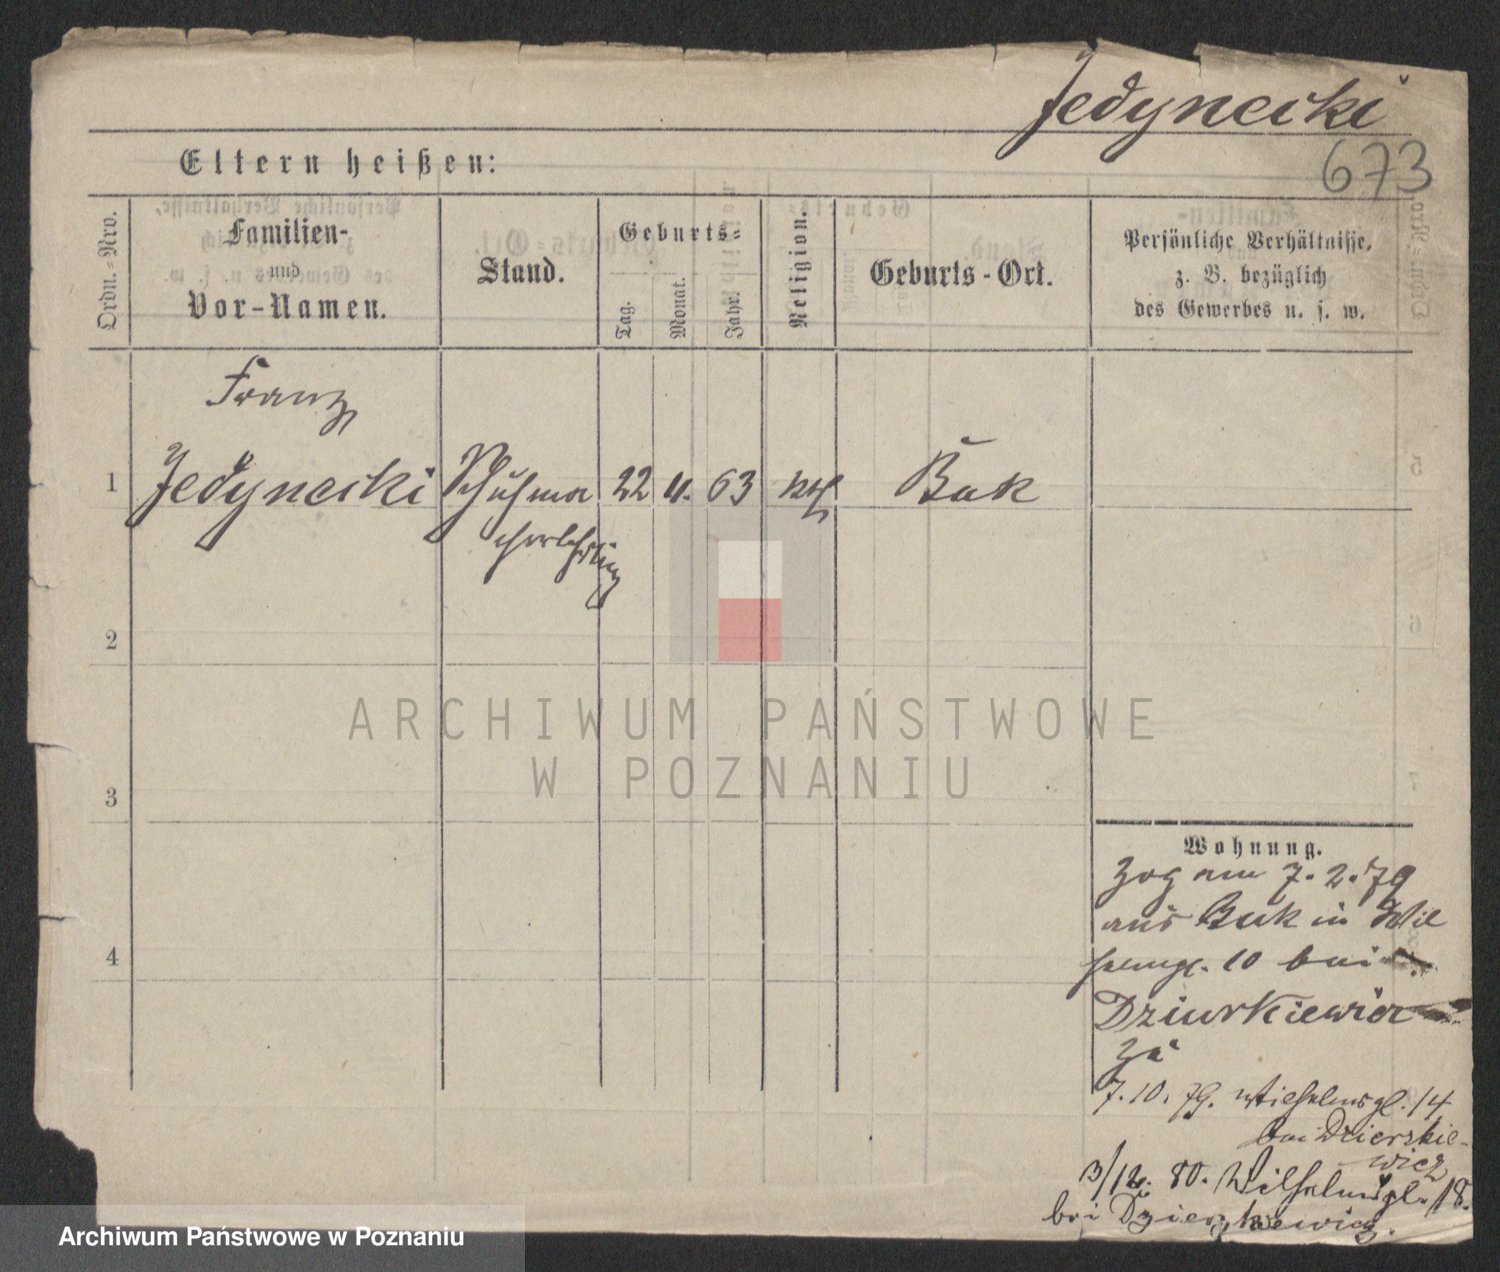 Jedynecki
673
Eltern heißen:
Ordn.=Nro.
Familien-
und
Vor-Namen.
Stand.
Geburts=
Tag.
Monat.
Jahr.
Religion.
Geburts-Ort.
Persönliche Verhältnisse,
z. B. bezüglich
des Gewerbes u. s. w.
Franz
1 Jedynecki Schuhma 22 4. 63 kath Buk
cherlehrling
2
3
4
Wohnung.
Zog am 7. 2. 79
aus Buk in Wil
helmspl. 10 bei
Dziurkiewicz
zu
7. 10. 79. Wilhelmspl. 14
bei Dzierzkie-
wicz
3/12. 80. Wilhelmspl. 18.
bei Dzierzkiewicz.
ARCHIWUM PAŃSTWOWE
W POZNANIU
Archiwum Państwowe w Poznaniu